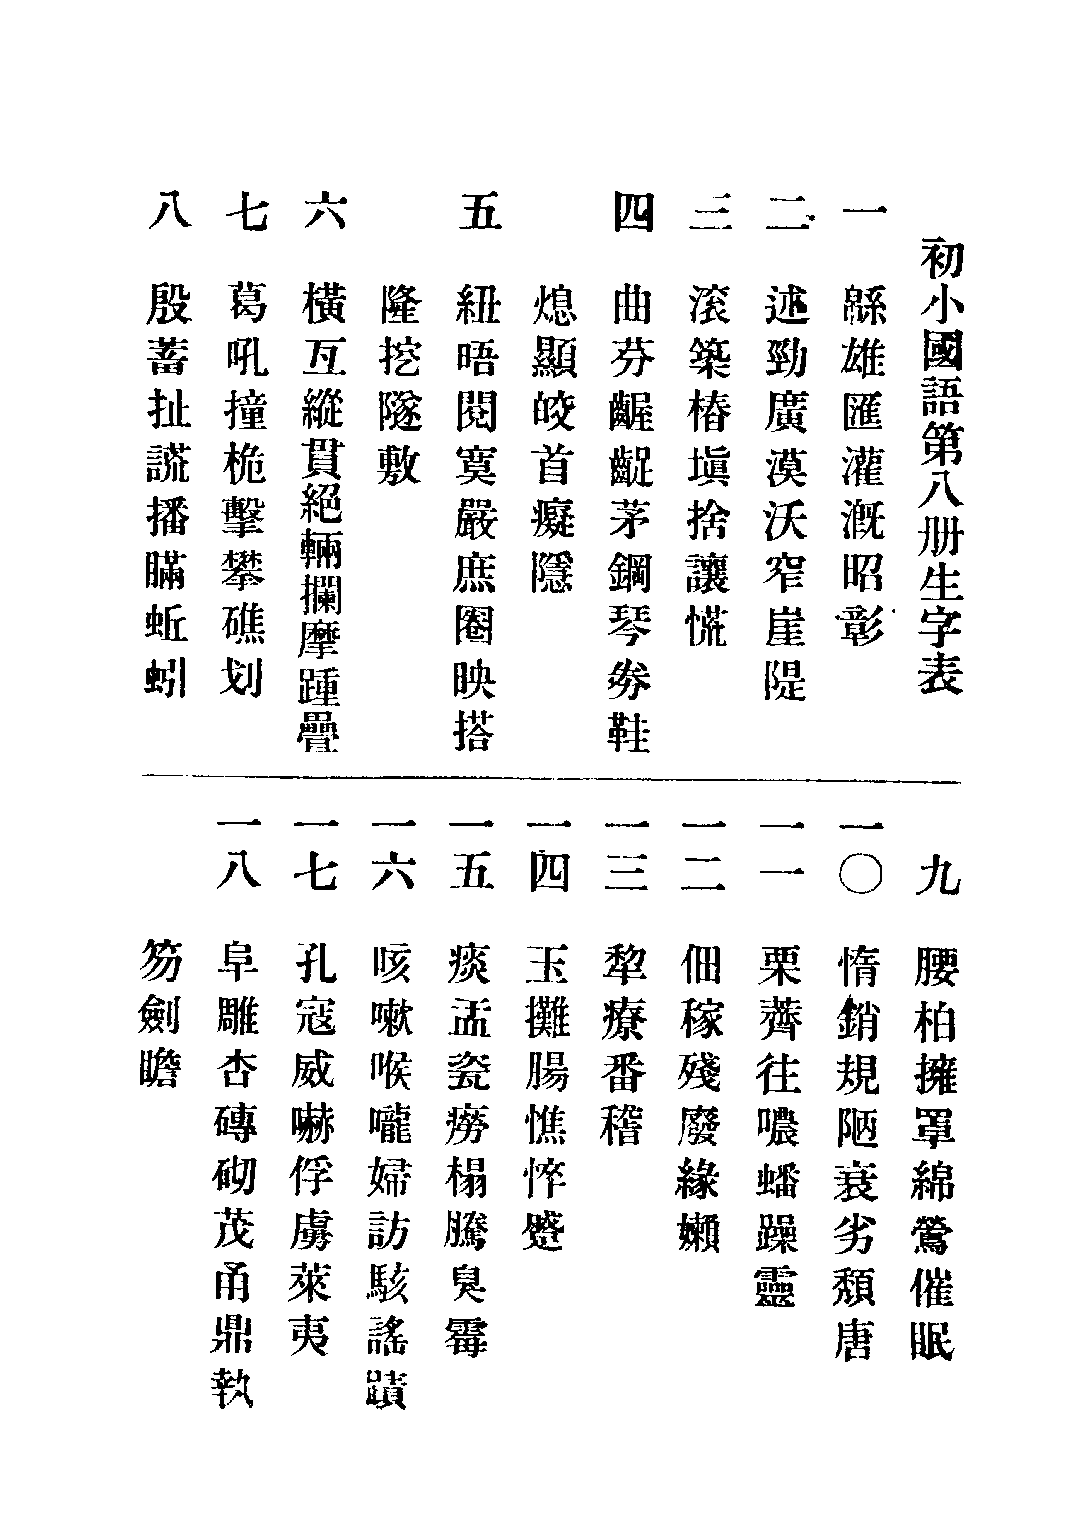 初小國語第八册生字表
一 緜雄匯灌漑昭彰
二 述勁廣漠沃窄崖隄
三 滾築樁塡捨讓慌
四 曲芬齷齪茅鋼琴劵鞋
熄顯皎首癡隱
五 紐晤閱寞嚴庶圈映搭
隆挖隧敷
六 橫亙縱貫絕輛攔摩踵疊
七 葛吼撞桅擊攀礁划
八 殷蓄扯謊播瞞蚯蚓
九 腰柏擁罩綿鶯催眠
一〇 惰銷規陋衰劣頹唐
一一 栗薺往噥蟠躁靈
一二 佃稼殘廢緣嬾
一三 犂療番稽
一四 玉攤腸憔悴蹙
一五 痰盂瓷癆榻騰臭霉
一六 咳嗽喉嚨婦訪駭謠蹟
一七 孔寇威嚇俘虜萊夷
一八 阜雕杏磚砌茂甬鼎執
笏劍瞻